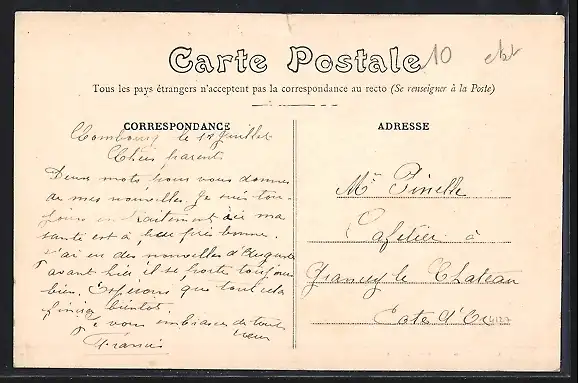 Carte Postale 10
Tous les pays étrangers n'acceptent pas la correspondance au recto (Se renseigner à la Poste)
CORRESPONDANCE
Combourg le 17 Juillet
Chers parents
Deux mots pour vous donner
de mes nouvelles. Je suis tou-
jours en traitement ici ma
santé est à peu près bonne.
J'ai eu des nouvelles d'Auguste
avant hier il se porte toujours
bien. Espérons que tout cela
finira bientôt.
Je vous embrasse de tout
cœur
Francis
ADRESSE
Mr Pinelle
Cafetier à
Grancey le Chateau
Cote d'Or